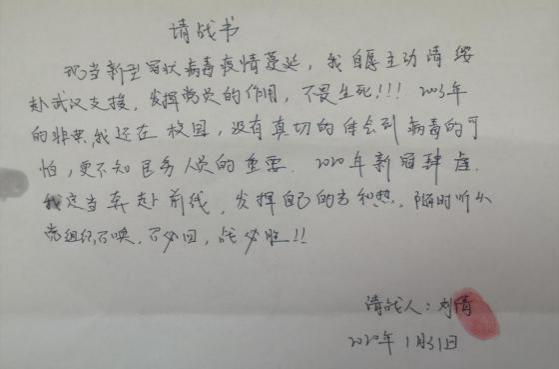 请战书
现当新型冠状病毒疫情蔓延，我自愿主动请缨
赴武汉支援，发挥党员的作用，不畏生死！！！2003年
的非典，我还在校园，没有真切的体会到病毒的可
怕，更不知医务人员的重要．2020年新冠肆虐．
我定当奔赴前线，发挥自己的光和热，随时听从
党组织召唤，召必回，战必胜！！
请战人：刘倩
2020年1月31日